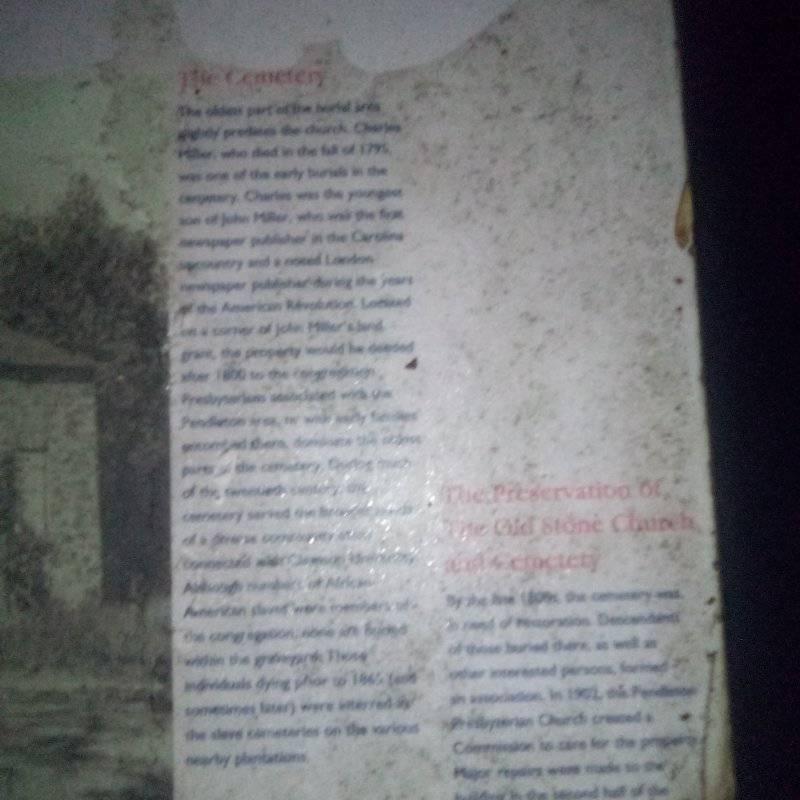 The Cemetery
The oldest part of the burial area
slightly predates the church. Charles
Miller, who died in the fall of 1795,
was one of the early burials in the
cemetery. Charles was the youngest
son of John Miller, who was the first
newspaper publisher in the Carolina
upcountry and a noted London
newspaper publisher during the years
of the American Revolution. Located
on a corner of John Miller's land
grant, the property would be deeded
after 1800 to the congregation.
Presbyterians associated with the
Pendleton area, or with early families
dominate the oldest
parts of the cemetery. During much
of the twentieth century, the
cemetery served the needs
of a diverse community
connected with Clemson University.
Although numbers of African-
American slaves were members of
the congregation, none are
within the graveyard. Those
individuals dying prior to 1865 (and
sometimes later) were interred in
the slave cemeteries on the various
nearby plantations.
The Preservation of
The Old Stone Church
and Cemetery
By the late 1800s, the cemetery was
in need of restoration. Descendents
of those buried there, as well as
other interested persons, formed
an association. In 1902, the Pendleton
Presbyterian Church created a
Commission to care for the property.
Major repairs were made to the
building in the second half of the